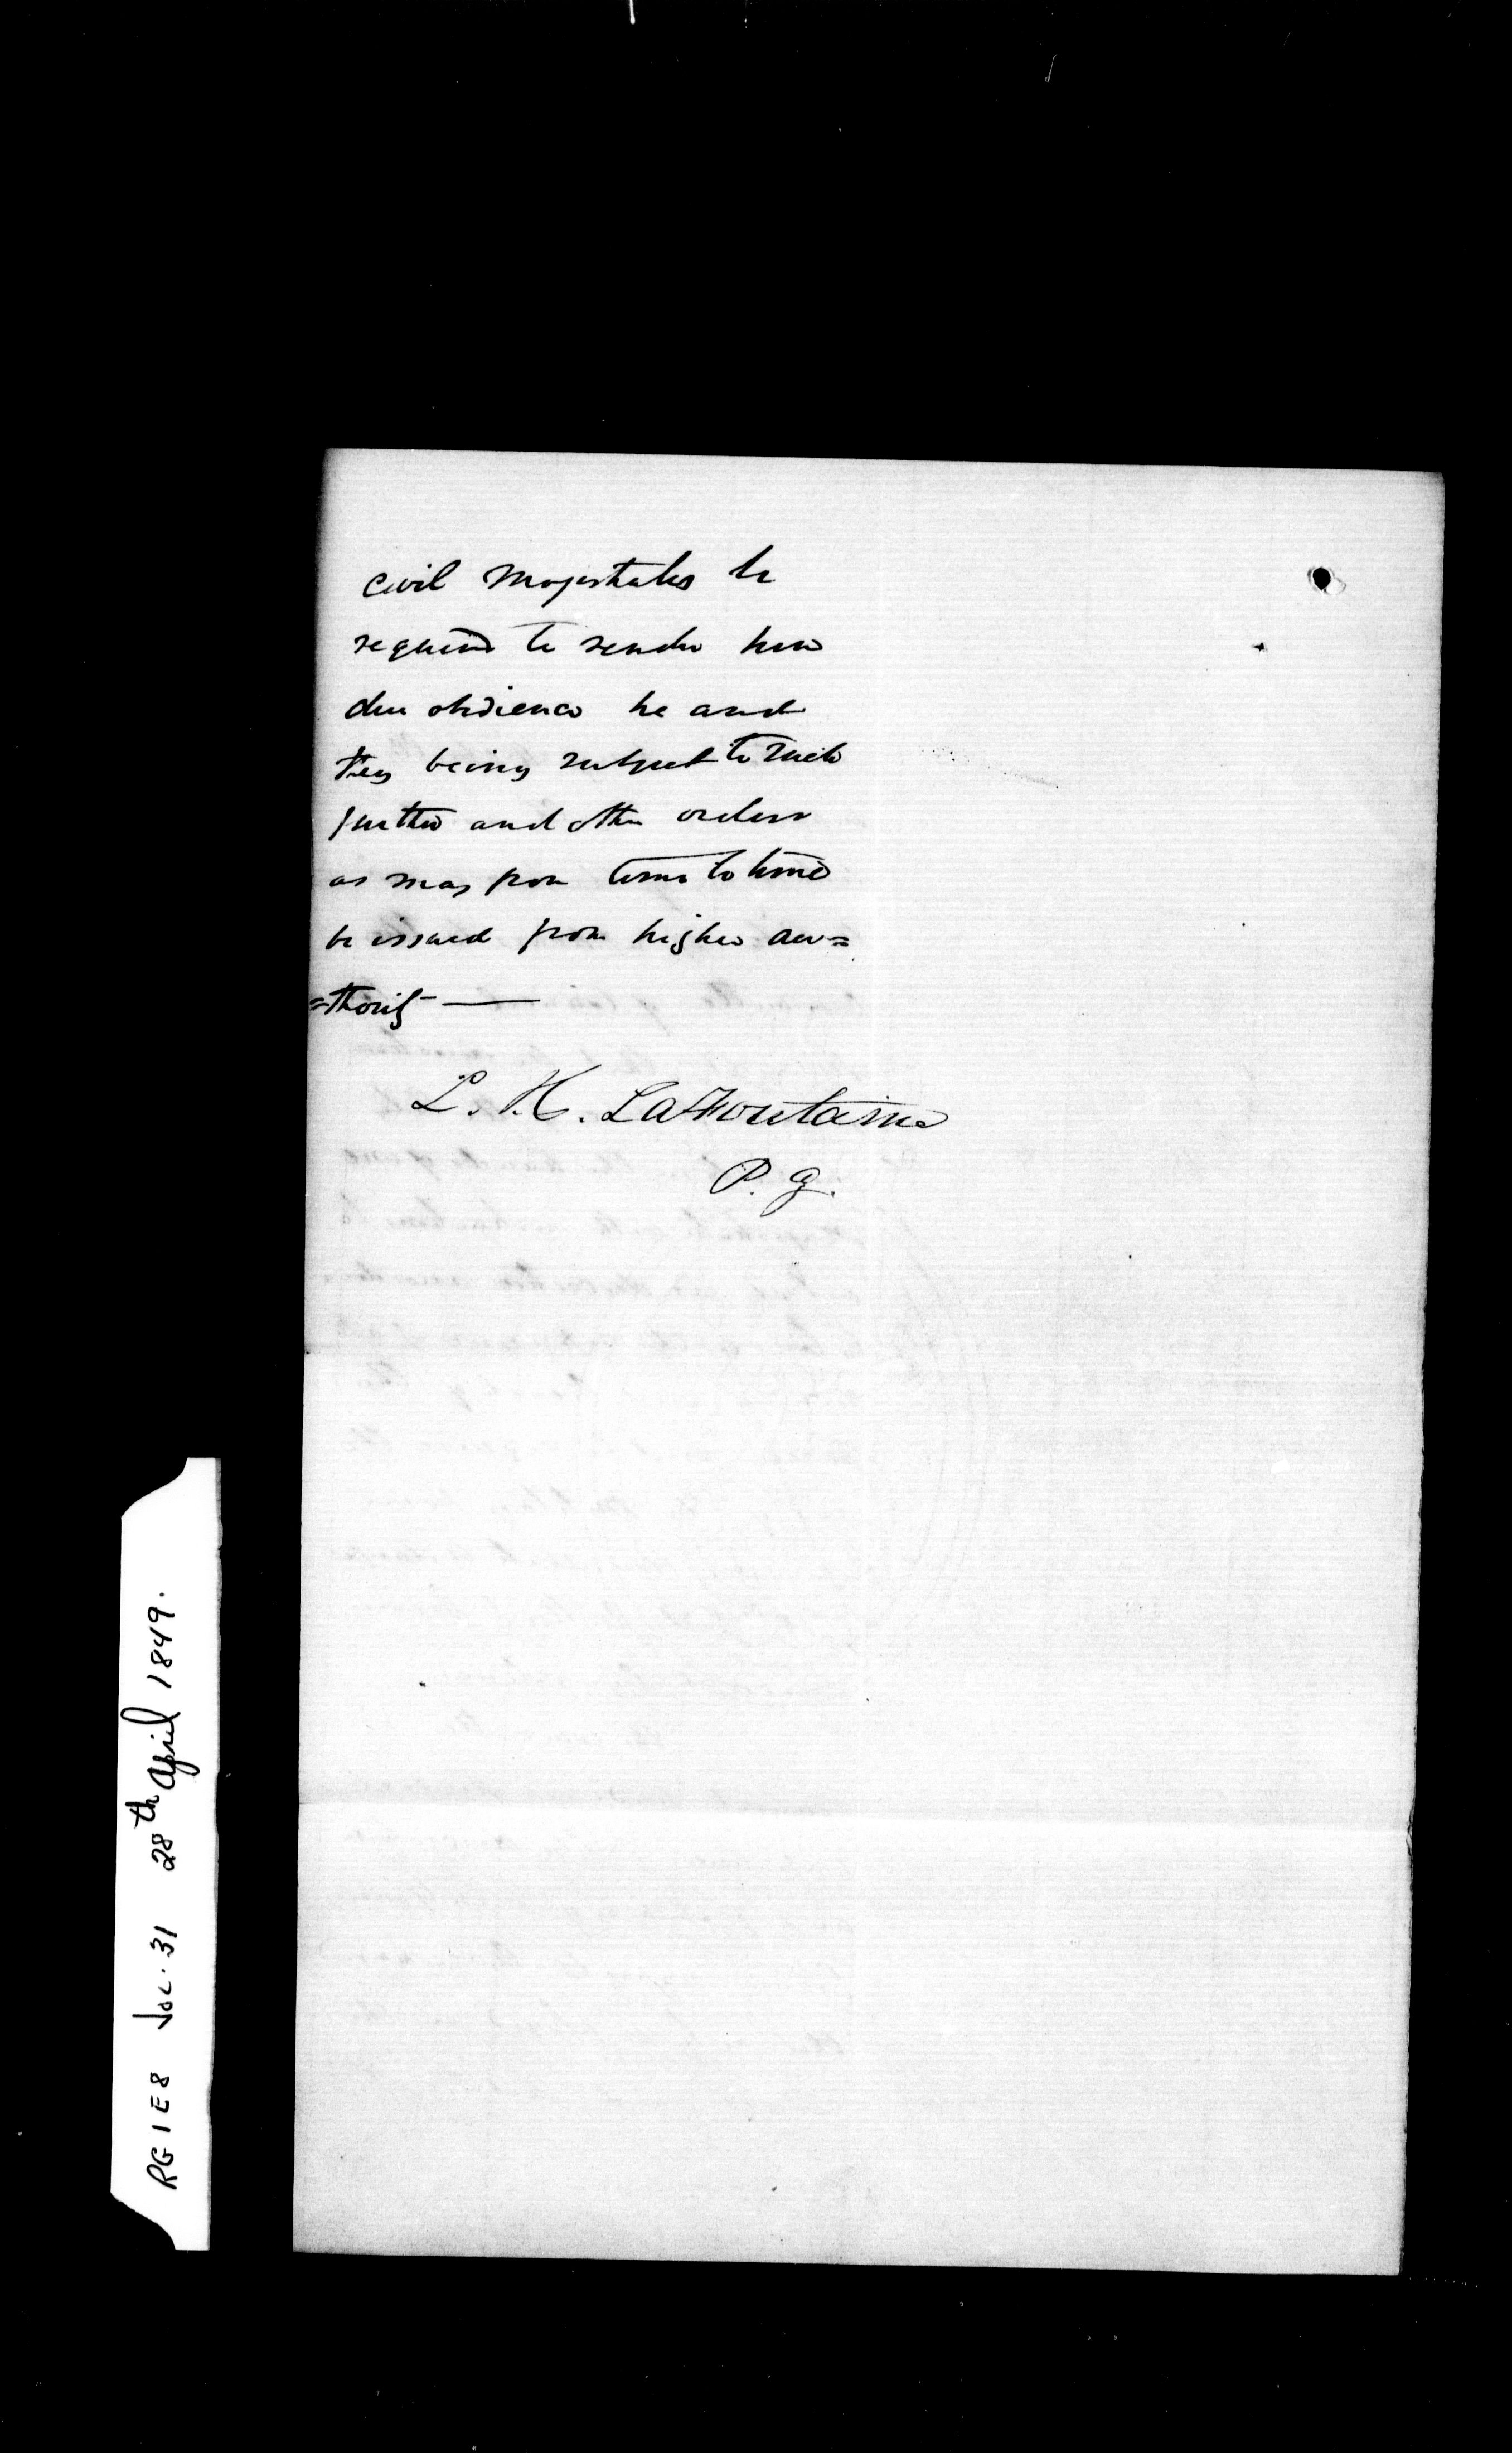 civil Magistrates be
required to render him
due obedience he and
they being subject to such
further and other orders
as may from time to time
be issued from higher au=
=thority —
L. H. LaFontaine
P. G.
RG 1 E8 Vol. 31 28th April 1849.